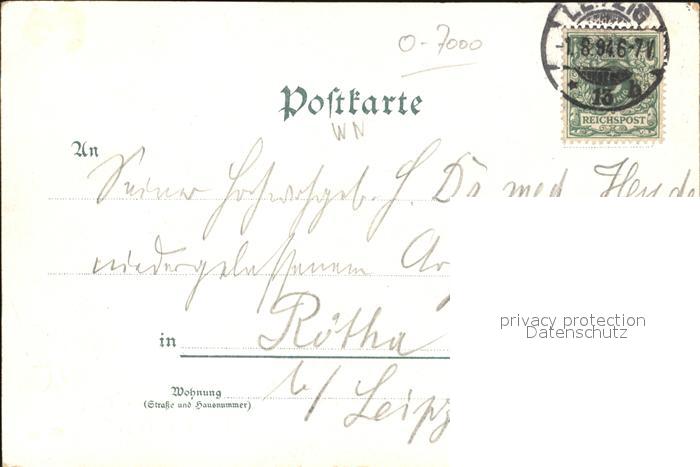 0-7000
LEIPZIG
-1.8.94 6-7V.
13. b
REICHSPOST
Postkarte
WN
An
Seiner Hochwohlgeb. H. Dr med
niedergelassenem
in Rötha
b/ Leipz
Wohnung
(Straße und Hausnummer)
privacy protection
Datenschutz